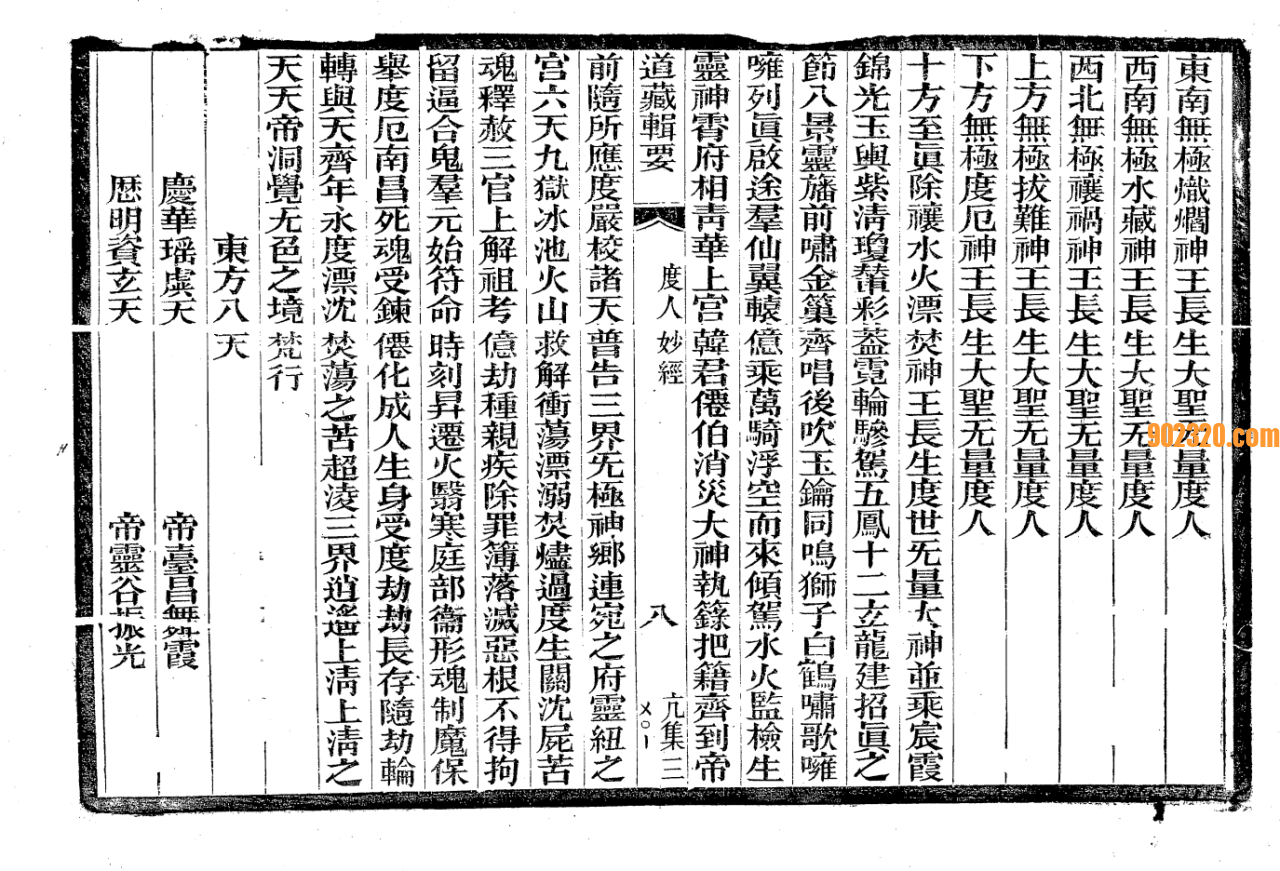 東南無極熾爛神王長生大聖无量度人
西南無極水藏神王長生大聖无量度人
西北無極禳禍神王長生大聖无量度人
上方無極拔難神王長生大聖无量度人
下方無極度厄神王長生大聖无量度人
十方至眞除禳水火漂焚神王長生度世旡量大神並乘宸霞
錦光玉輿紫淸瓊輦彩蓋霓輪驂駕五鳳十二玄龍建招眞之
節八景靈旛前嘯金菓齊唱後吹玉鑰同鳴獅子白鶴嘯歌嗈
嗈列眞啟途羣仙翼轅億乘萬騎浮空而來傾駕水火監檢生
靈神霄府相靑華上宮韓君僊伯消災大神執籙把籍齊到帝
道藏輯要
度人妙經
八
亢集三
前隨所應度嚴校諸天普告三界旡極神鄉連宛之府靈紐之
宮六天九獄冰池火山救解衝蕩漂溺焚燼過度生關沈屍苦
魂釋赦三官上解祖考億劫種親疾除罪簿落滅惡根不得拘
留逼合鬼羣元始符命時刻昇遷火翳寒庭部衞形魂制魔保
舉度厄南昌死魂受鍊僊化成人生身受度劫劫長存隨劫輪
轉與天齊年永度漂沈焚蕩之苦超淩三界逍遙上淸上淸之
天天帝洞覺无色之境梵行
東方八天
慶華瑶虞天 帝臺昌無舛霞
歴明資玄天 帝靈谷振光
902320.com